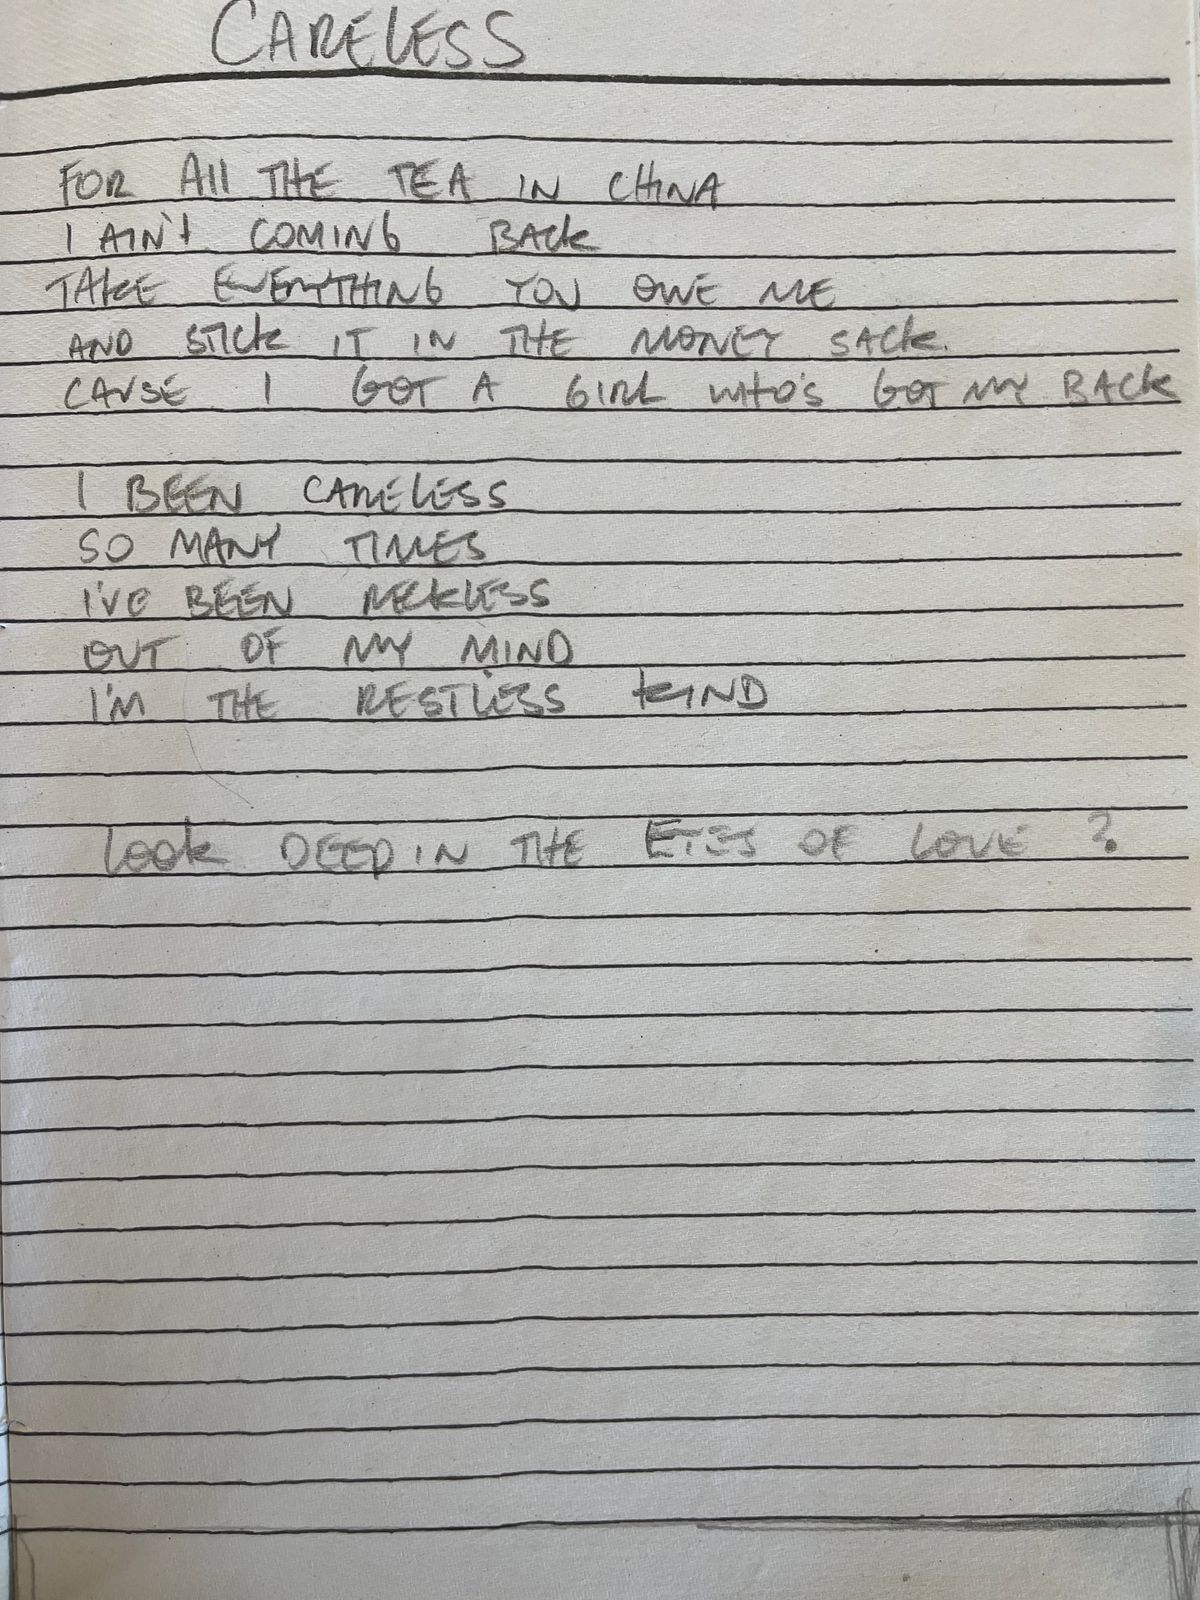 CARELESS
FOR All THE TEA IN CHINA
I AIN't COMING BACk
TAkE EVERYTHING YOU OWE ME
AND STICk IT IN THE MONEY SACk.
CAUSE I GOT A GIRL WHO'S GOT MY BACK
I BEEN CARELESS
SO MANY TIMES
I'VE BEEN RECKLESS
OUT OF MY MIND
I'M THE RESTLESS KIND
Look DEEP IN THE EYES OF LOVE ?